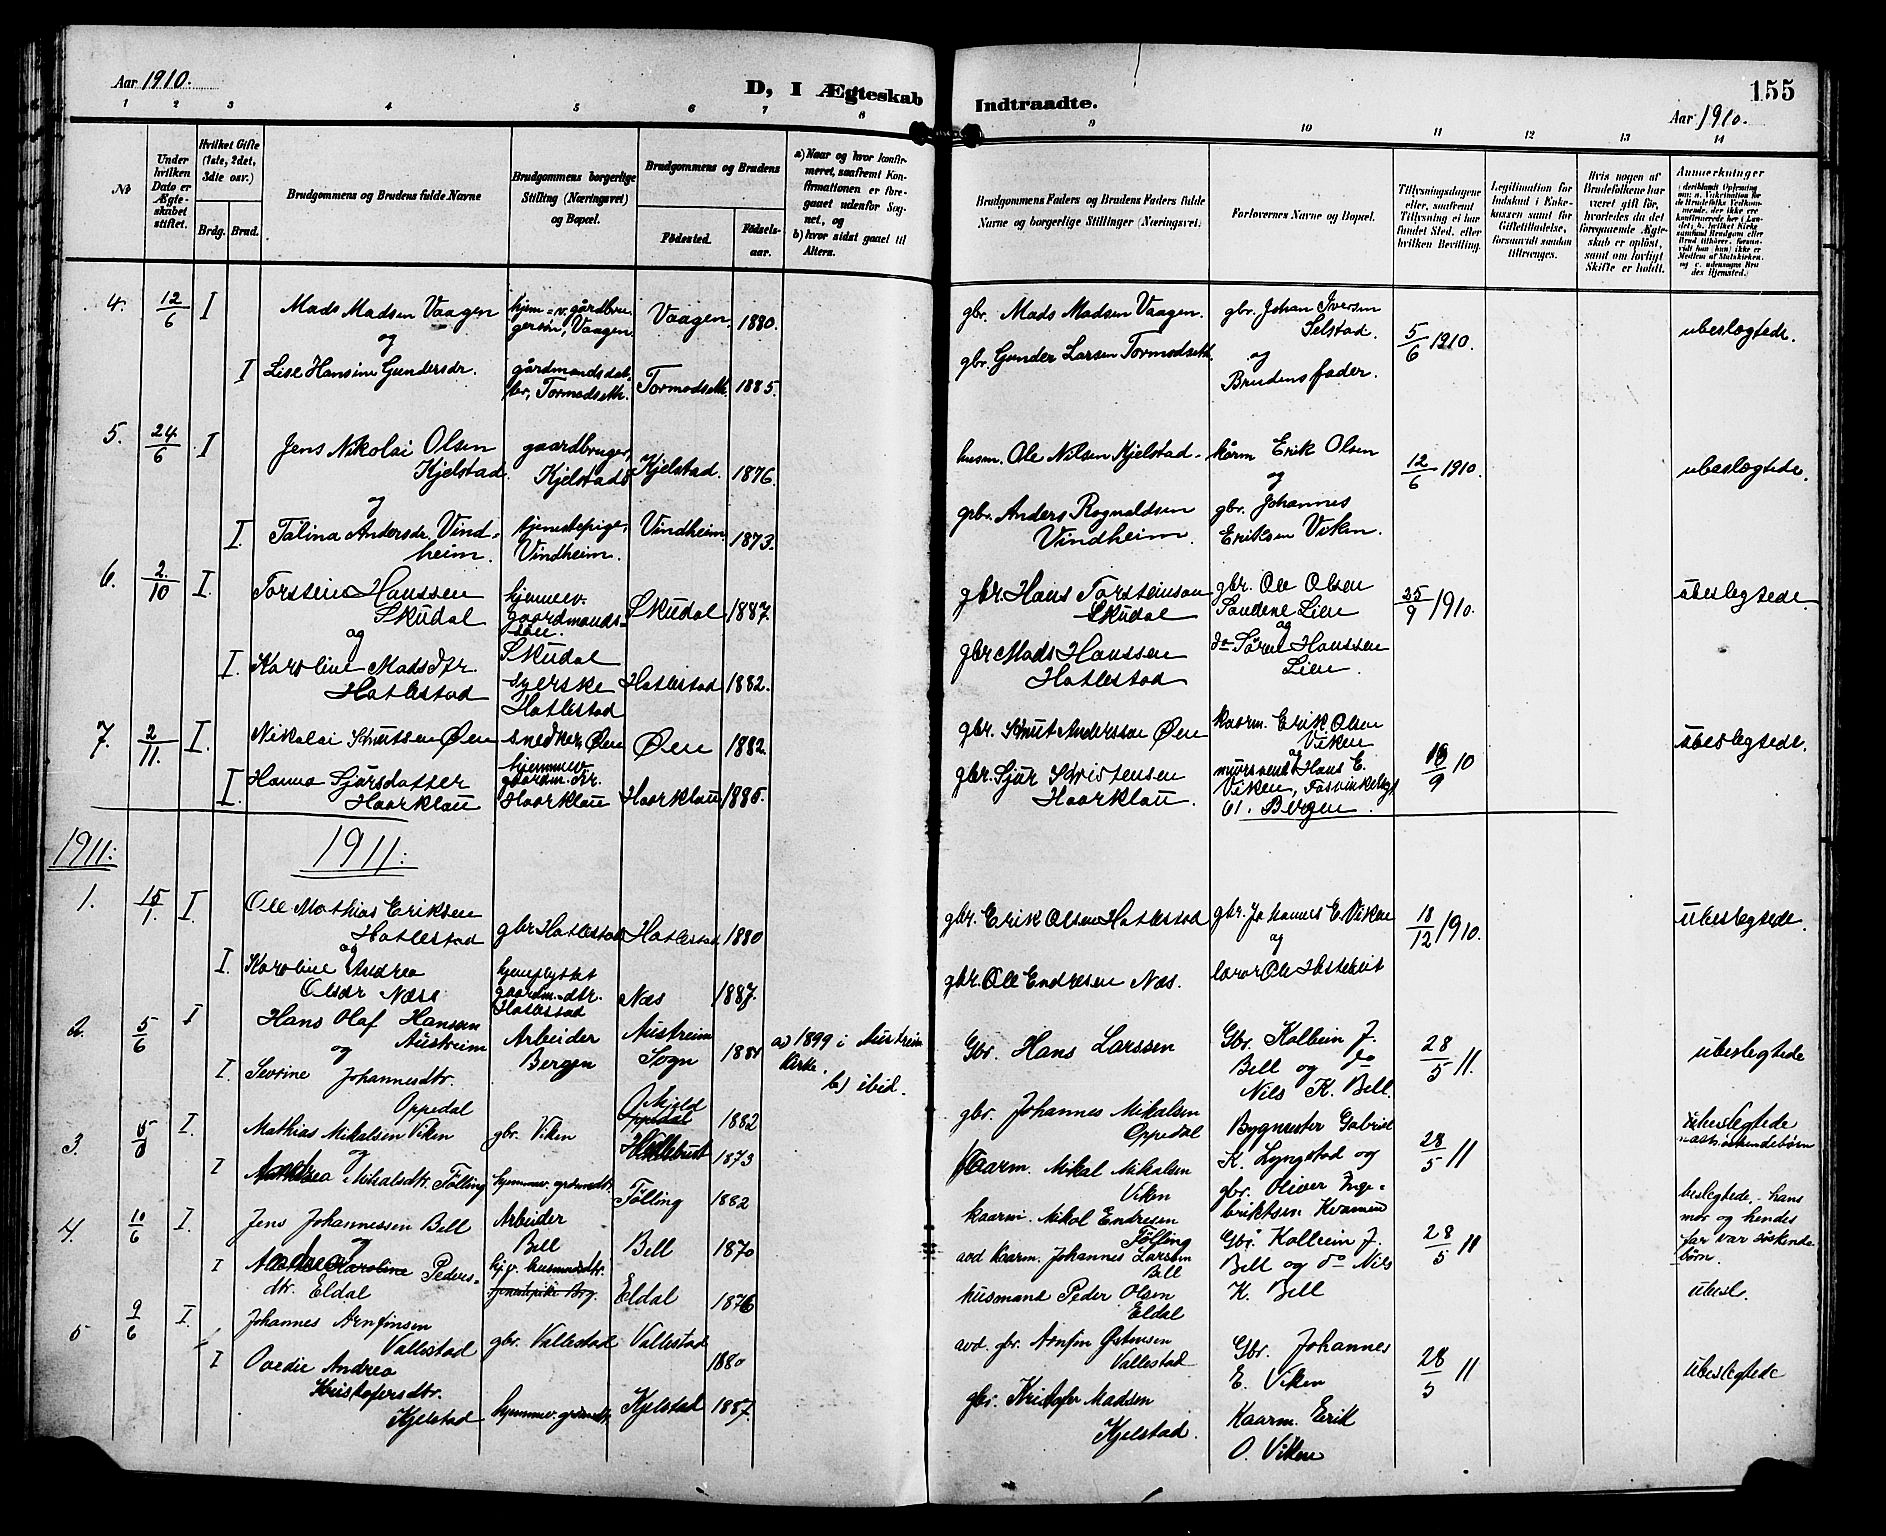 Aar 1910.
D, I Ægteskab
Indtraadte.
155
Aar 1910.
1 2 3 4 5 6 7 8 9 10 11 12 13 14
No
Under hvilken Dato er Ægteskabet stiftet.
Hvilket Gifte (1ste, 2det, 3die osv.)
Brdg. Brud.
Brudgommens og Brudens fulde Navne
Brudgommens borgerlige Stilling (Næringsvei) og Bopæl.
Brudgommens og Brudens
Fødested.
Fødselsaar.
a) Naar og hvor konfirmeret, saafremt Konfirmationen er foregaaet udenfor Sognet, og
b) hvor sidst gaaet til Alters.
Brudgommens Faders og Brudens Faders fulde Navne og borgerlige Stillinger (Næringsvei.)
Forlovernes Navne og Bopæl.
Tillysningsdagene eller, saafremt Tillysning ei har fundet Sted, efter hvilken Bevilling.
Legitimation for Indskud i Enkekassen samt for Giftetilladelse, forsaavidt saadan tiltrænges.
Hvis nogen af Brudefolkene har været gift før, hvorledes da det foregaaende Ægteskab er opløst, samt om lovligt Skifte er holdt.
Anmerkninger
4. 12/6 I Mads Madsen Vaagen
Vaagen 1880.
gbr. Mads Madsen Vaagen.
gbr. Johan Iversen Selstad.
5/6 1910.
ubeslægtede.
og
I Lise Hansine Gundersdr.
gårdmandsdatter, Tormodseth.
Tormodseth 1885.
gbr. Gunder Larsen Tormodseth
og
Brudens fader.
5. 24/6 I Jens Nikolai Olsen Kjelstad
gaardbruger, Kjelstad
Kjelstad. 1876.
husm. Ole Nilsen Kjelstad
kårm Erik Olsen
12/6 1910.
ubeslægtede.
og
I. Talina Andersdr. Vindheim.
tjenestepige, Vindheim.
Vindheim 1873.
gbr. Anders Rognaldsen Vindheim.
og
gbr. Johannes Eriksen Viken.
6. 2/10 I. Torstein Hanssen Skudal
hjemmev. gaardmandssøn. Skudal
Skudal 1887.
gbr. Hans Torsteinson Skudal
gbr. Ole Olsen Sandene Lien
25/9 1910.
ubeslegtede.
og
I. Karoline Madsdtr. Hatlestad
syerske Hatlestad
Hatlestad 1882.
gbr Mads Hanssen Hatlestad
og
do Søren Hanssen Lien.
7. 2/11. I. Nikolai Knutsen Øen
snedker, Øen
Øen 1882.
gbr. Knut Andersson Øen
kaarm. Erik Olsen Viken
9 10
ubeslegtede.
I. Hanna Sjursdatter Haarklau
hjemmev. gaardm. dtr. Haarklau
Haarklau
gbr. Sjur Kristensen Haarklau.
og
Hans E. Viken,
Bergen.
1911: 1911:
1. 15/1. I. Ole Mathias Eriksen Hatlestad
gbr Hatlestad
Hatlestad 1880
gbr. Erik Olsen Hatlestad
gbr. Johannes E. Viken
18/12 1910.
ubeslegtede.
og
I. Karoline Andrea Olsdr Næss
gaardm.-dtr. Hatlestad
Næs 1887.
gbr. Ole Endresen Næs.
og
lærer Ole Hesteheit
2. 5/6 I Hans Olaf Hansen Austreim
Arbeider Bergen
Austreim Sogn
a) 1899 i Austreim Kirke. b) ibid.
Gbr. Hans Larssen
Gbr. Kolbein J. Bell og do Nils K. Bell.
28/5 11.
ubeslegtede
og
I. Sevrine Johannesdtr. Oppedal
1882
gbr. Johannes Mikalsen Oppedal
3. I. Mathias Mikalsen Viken
gbr. Viken
1873
kaarm. Mikal Mikalsen Viken
Bygmester Gabriel K. Lyngstad og gbr. Oliver Ingebriktsen Kvamen
28/5 11
og
I Mikalsdtr. Følling
hjemmev. grdmdtr.
Følling 1882
kaarm. Mikal Endresen Følling
beslegtede, – hans mor og hendes far var søskendebørn.
4. 10/6 I. Jens Johannessen Bell
Arbeider Bell
Bell 1870
avd kaarm. Johannes Larsen Bell
Gbr. Kolbein J. Bell og do Nils K. Bell
28/5 11
og
I Karoline Pedersdtr. Eldal
Eldal 1876
husmand Peder Olsen Eldal
ubesl.
5 9/6 I. Johannes Arnfinsen Vallestad
gbr. Vallestad
Vallestad 1880
avd. gbr. Arnfin Østensen Vallestad
Gbr. Johannes E. Viken
28/5 11
ubeslegtede
I Ovedie Andrea Kristofersdtr. Kjelstad
hjemmev. grdmdtr.
Kjelstad 1887.
gbr. Kristofer Madsen Kjelstad.
Kaarm. Erik O. Viken